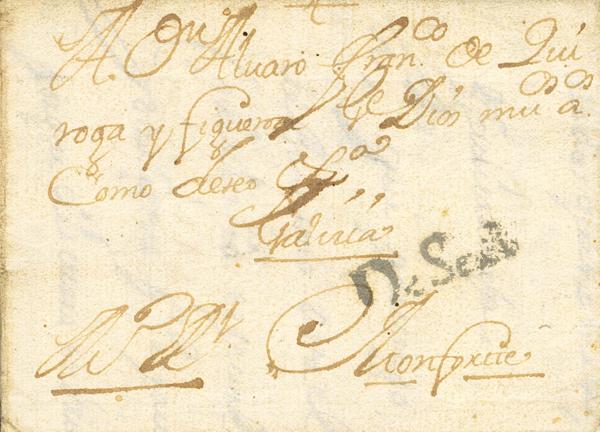 A Dn Alvaro Franco de Qui
roga y figueroa Ge Dios mus as
Como deseo
Galicia
De Sev
Monforte